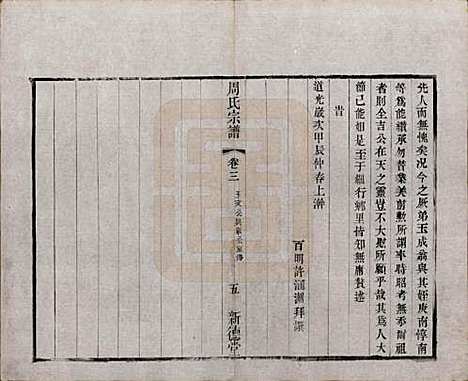 先人而無愧矣況今之厥弟玉成翁與其姪庚南停南
等爲能纘承勿替業美前勲所謂率時昭考無忝爾祖
者則全吉公在天之靈豈不大慰所願乎哉其爲人大
節已能如是至于細行鄉里皆知無庸贅述
旹
道光歲次甲辰仲春上澣
百明許涵
拜譔
周氏宗譜
卷三
五
新德堂